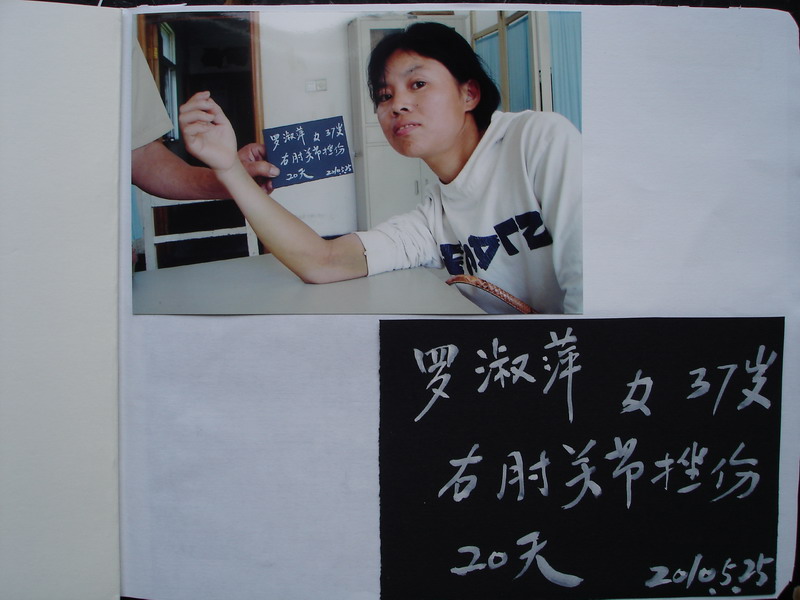 罗淑萍 女 37岁
右肘关节挫伤
20天 2010.5.25
罗淑萍 女 37岁
右肘关节挫伤
20天 2010.5.25